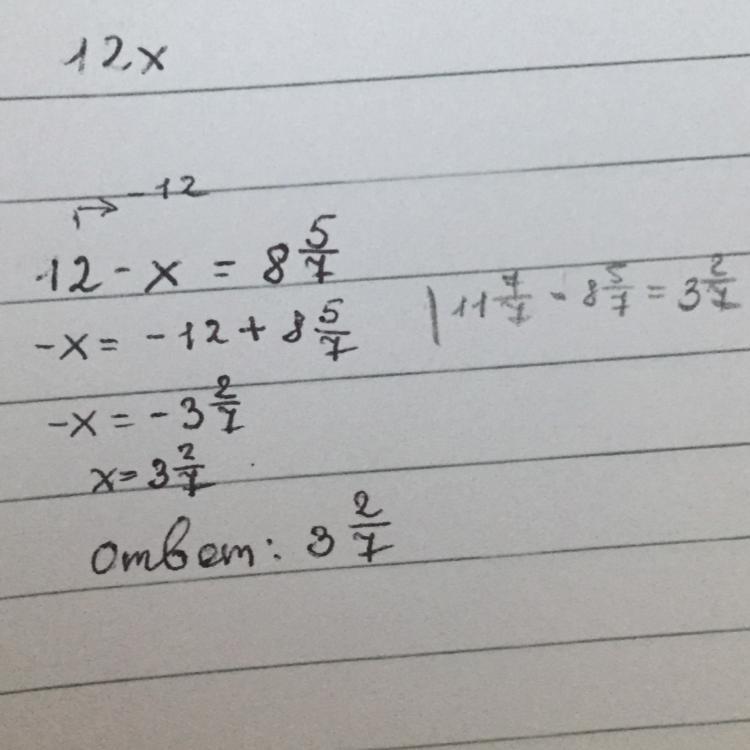 12x
-12
12 - x = 8 5/7
-x = -12 + 8 5/7 | 11 7/7 - 8 5/7 = 3 2/7
-x = -3 2/7
x = 3 2/7
ответ: 3 2/7